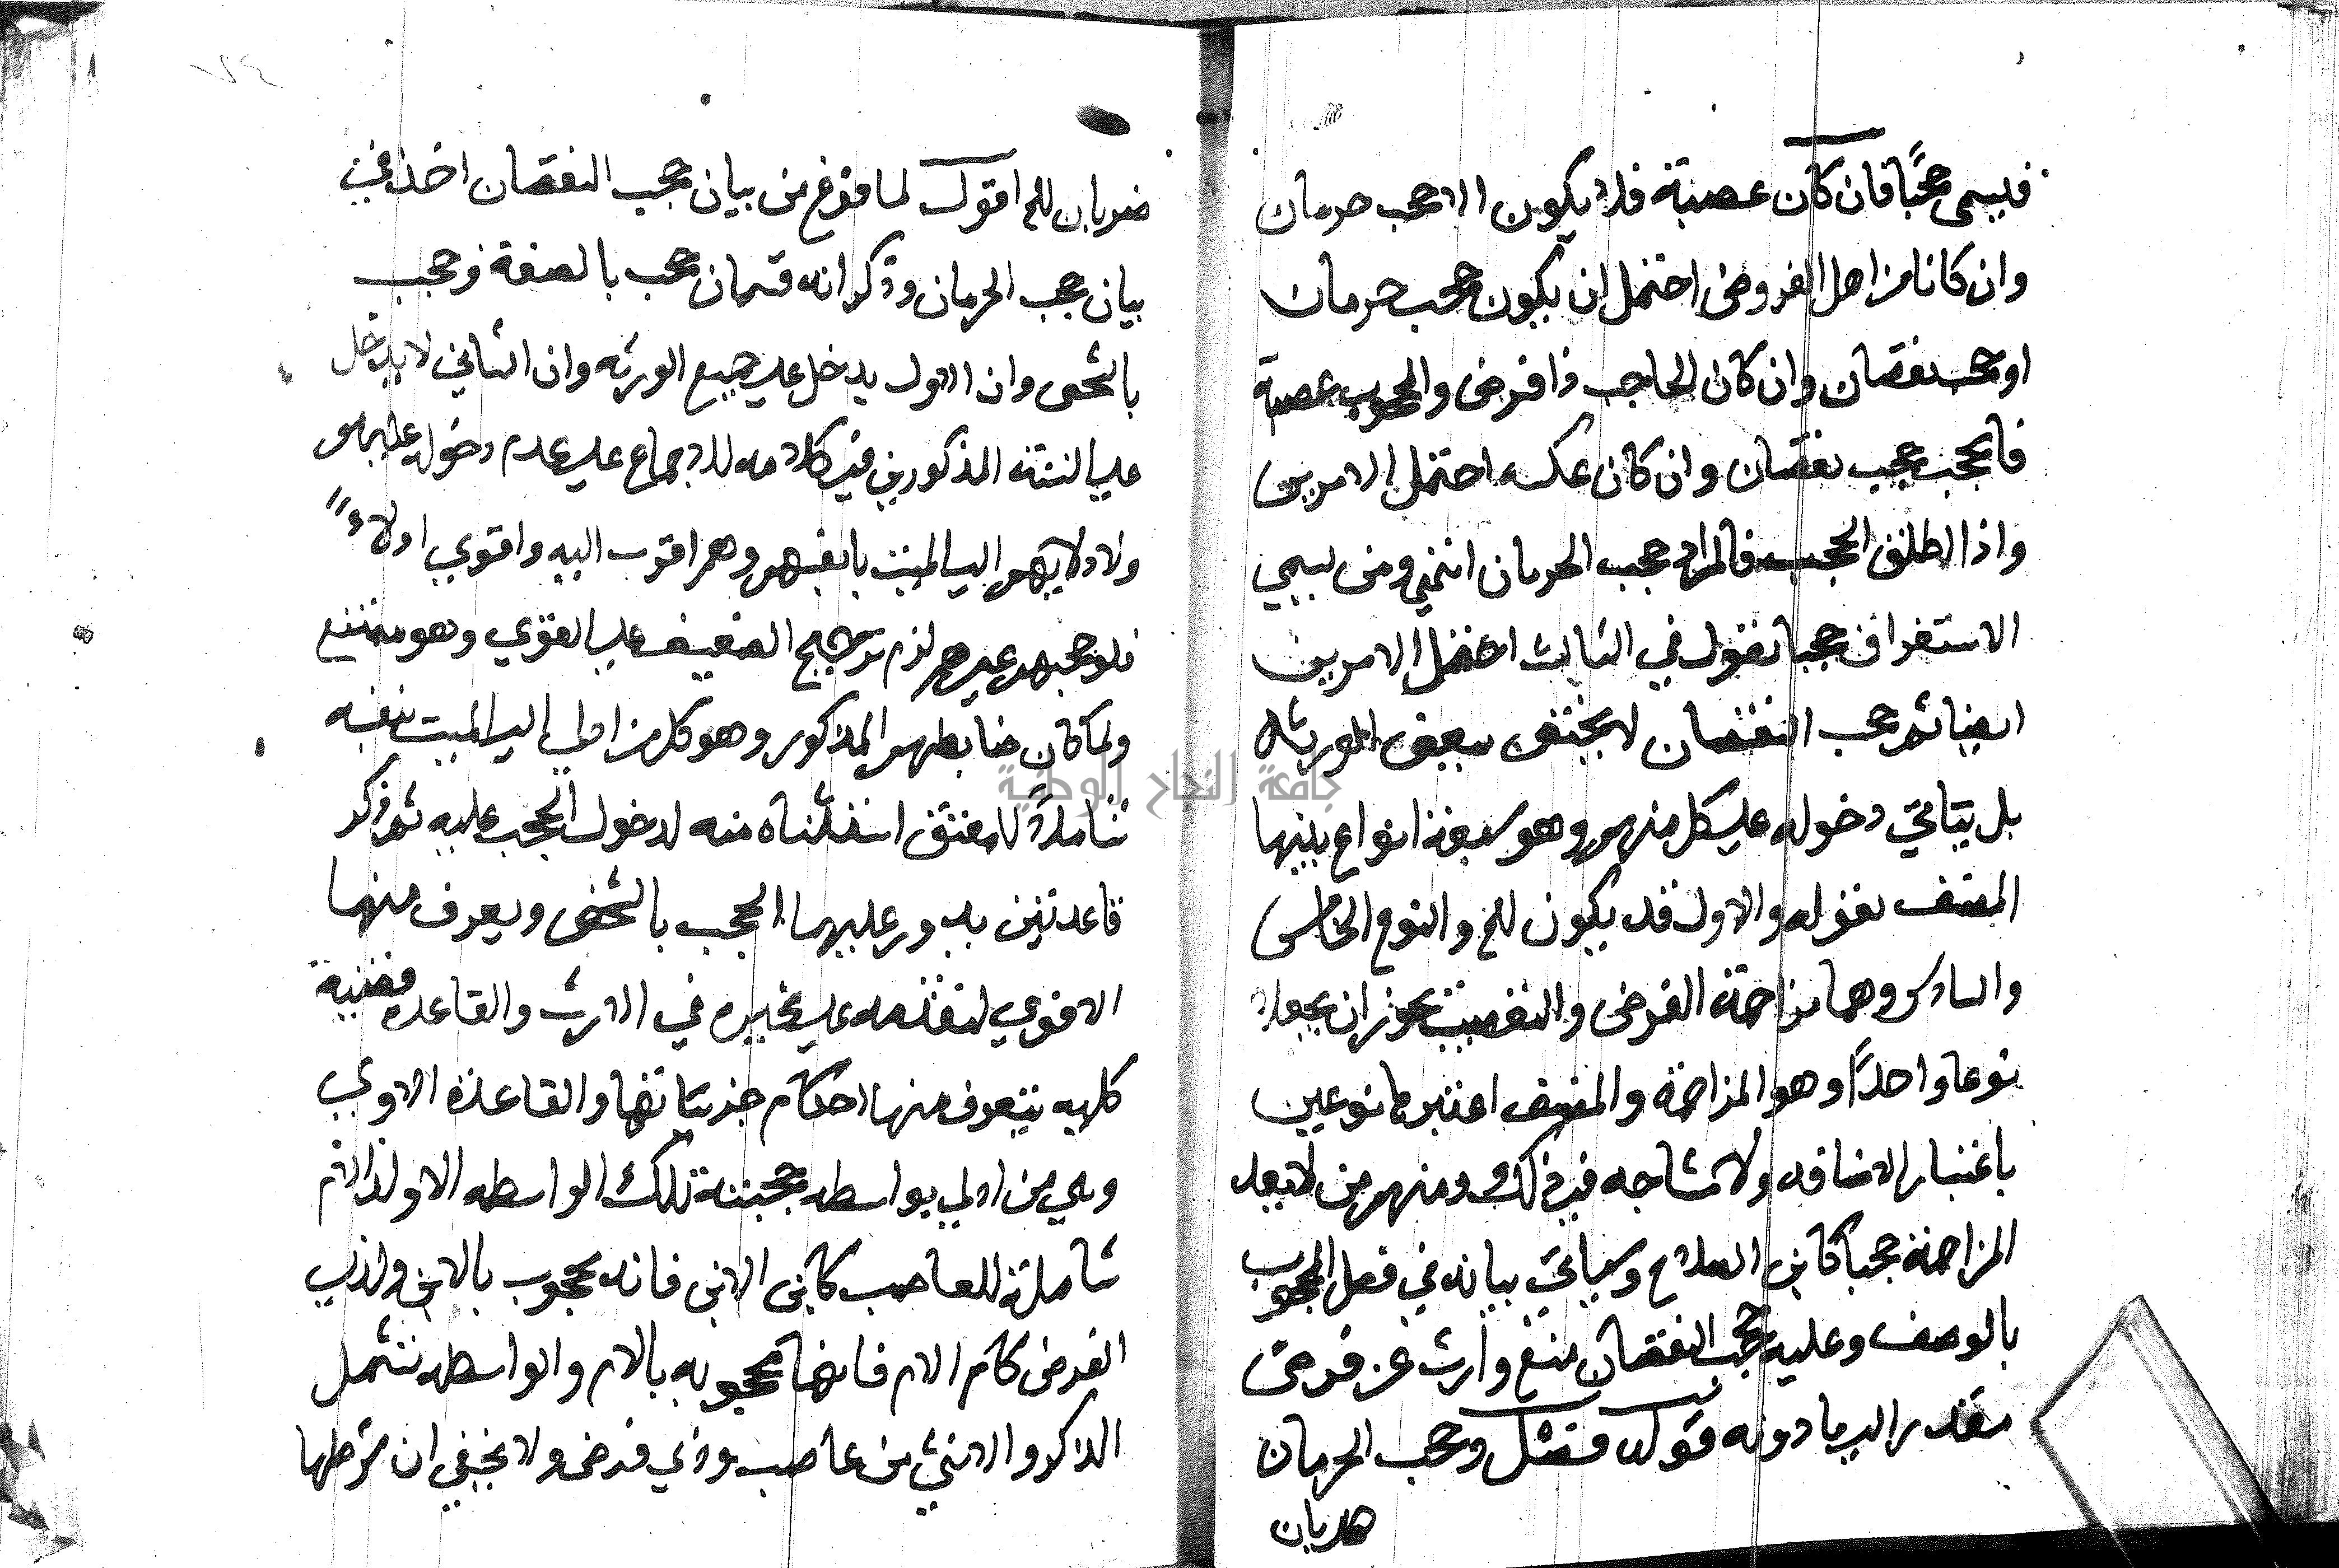 فيسمى حجبًا فان كان عصبة فلا يكون الا حجب حرمان
وان كانا من اهل الفروض احتمل ان يكون حجب حرمان
او حجب نقصان وان كان الحاجب ذا فرض والمحجوب عصبة
فالحجب حجب نقصان وان كان عكسه احتمل الامرين
واذا اطلق الحجب فالمراد حجب الحرمان انتهى ومن يسمي
الاستغراق حجبا يقول في الثالث احتمل الامرين
ايضا ثم حجب النقصان لا يختص ببعض الورثه
بل يتاتي دخوله على كل منهم وهو سبعة انواع بينها
المصنف بقوله والاول قد يكون للخ والنوع الخامس
والسادس وهما مزاحمة الفرض والتعصيب يجوز ان يجعلا
نوعا واحدًا وهو المزاحمة والمصنف اعتبرها نوعين
باعتبار الاضافه ولا مشاحه في ذلك ومنهم من لا يعد
المزاحمة حجبا كابن الصلاح وسياتي بيانه في فصل المحجوب
بالوصف وعليه حجب النقصان منع وارث عن فرض
مقدر الى ما دونه قوله فصل وحجب الحرمان
ضربان
٧٤
ضربان للخ اقول لما فرغ من بيان حجب النقصان اخذ في
بيان حجب الحرمان وذكر انه قسمان حجب بالصفة وحجب
بالشخص وان الاول يدخل على جميع الورثه وان الثاني لا يدخل
على الستة المذكورين في كلامه للاجماع على عدم دخوله عليهم
ولادلايهم الى الميت بانفسهم وهم اقرب اليه واقوى ادلاءً
فلو حجبهم غيرهم لزم ترجيح الضعيف على القوي وهو ممتنع
ولما كان ضابطهم المذكور وهو كل من ادلى الى الميت بنفسه
شاملاً للمعتق استثناه منه لدخول الحجب عليه ثم ذكر
قاعدتين يدور عليهما الحجب بالشخص ويعرف منهما
الاقوى لتقدمه على غيره في الارث والقاعدة قضية
كليه يتعرف منها احكام جزئياتها والقاعدة الاولى
وهي من ادلى بواسطه حجبته تلك الواسطه الا ولد الام
شاملة للعاصب كابن الابن فانه محجوب بالابن ولذي
الفرض كام الام فانها محجوبه بالام والواسطه تشمل
الذكر والانثى من عاصب وذي فرض ولا يخفى ان شرطها
جامعة النجاح الوطنية